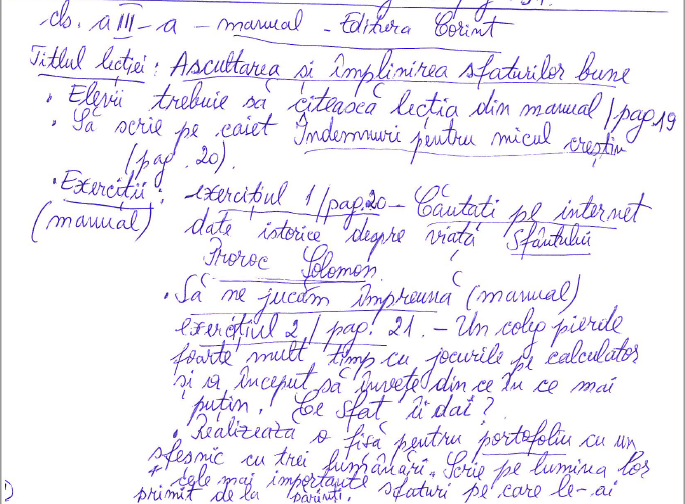 cls. a III-a - manual - Editura Corint
Titlul lecției: Ascultarea și împlinirea sfaturilor bune
• Elevii trebuie să citească lecția din manual / pag. 19
• Să scrie pe caiet Îndemnuri pentru micul creștin
(pag. 20).
• Exerciții: exercițiul 1 / pag. 20 - Căutați pe internet
(manual) date istorice despre viața Sfântului
Proroc Solomon.
• Să ne jucăm împreună (manual)
exercițiul 2 / pag. 21. - Un coleg pierde
foarte mult timp cu jocurile pe calculator
și a început să învețe din ce în ce mai
puțin. Ce sfat îi dai?
• Realizează o fișă pentru portofoliu cu un
sfeșnic cu trei lumânări. Scrie pe lumina lor
cele mai importante sfaturi pe care le-ai
primit de la părinți.